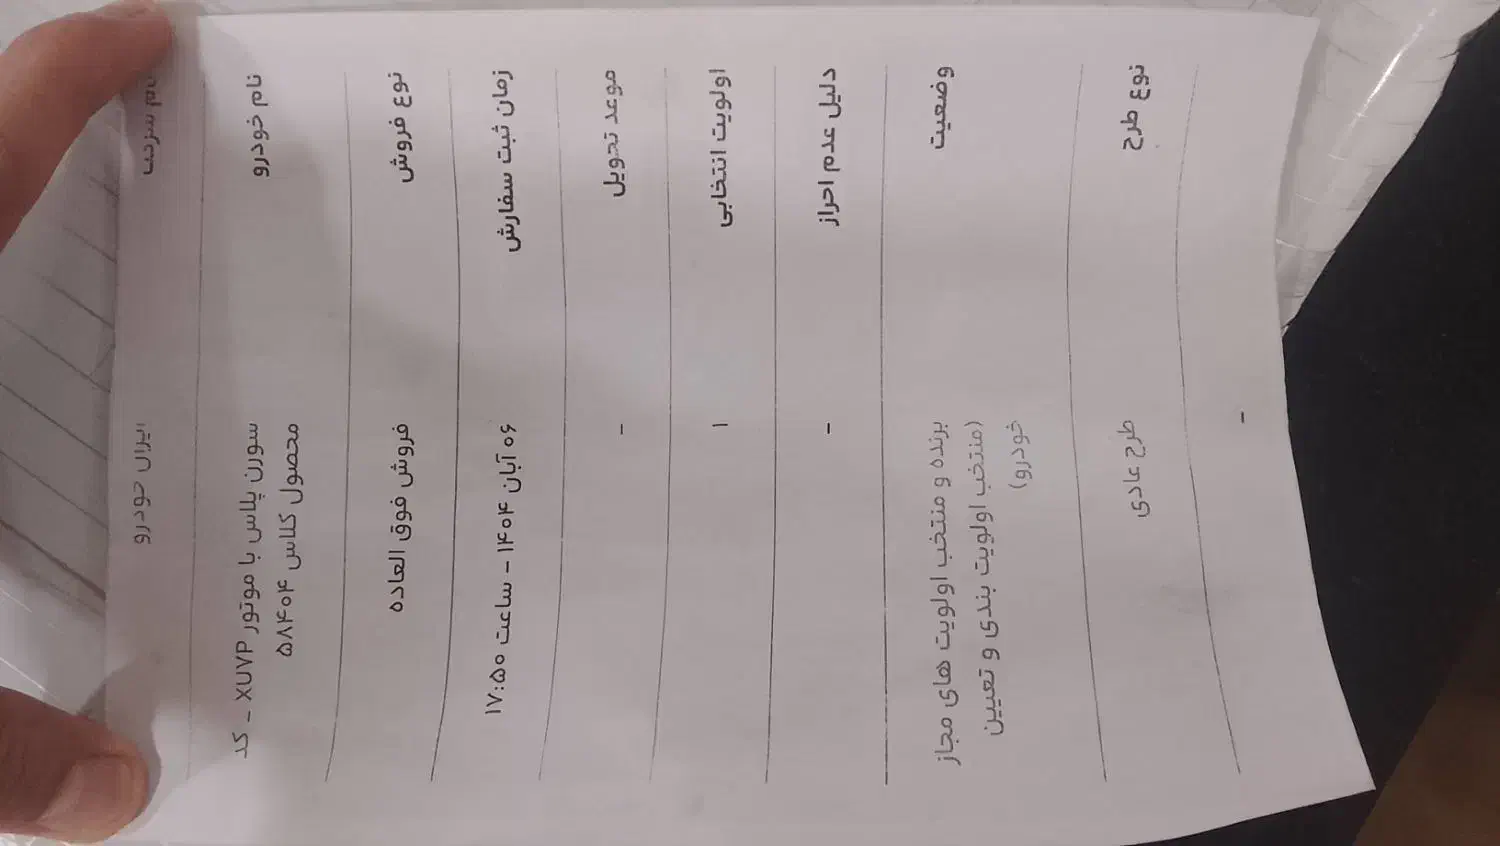 نام شرکت
ایران خودرو
نام خودرو
سورن پلاس با موتور XUVP - کد
محصول کلاس ۵۸۴۰۴
نوع فروش
فروش فوق العاده
زمان ثبت سفارش
۰۶ آبان ۱۴۰۴ - ساعت ۱۷:۵۰
موعد تحویل
-
اولویت انتخابی
۱
دلیل عدم احراز
-
وضعیت
برنده و منتخب اولویت های مجاز
(منتخب اولویت بندی و تعیین
خودرو)
نوع طرح
طرح عادی
-